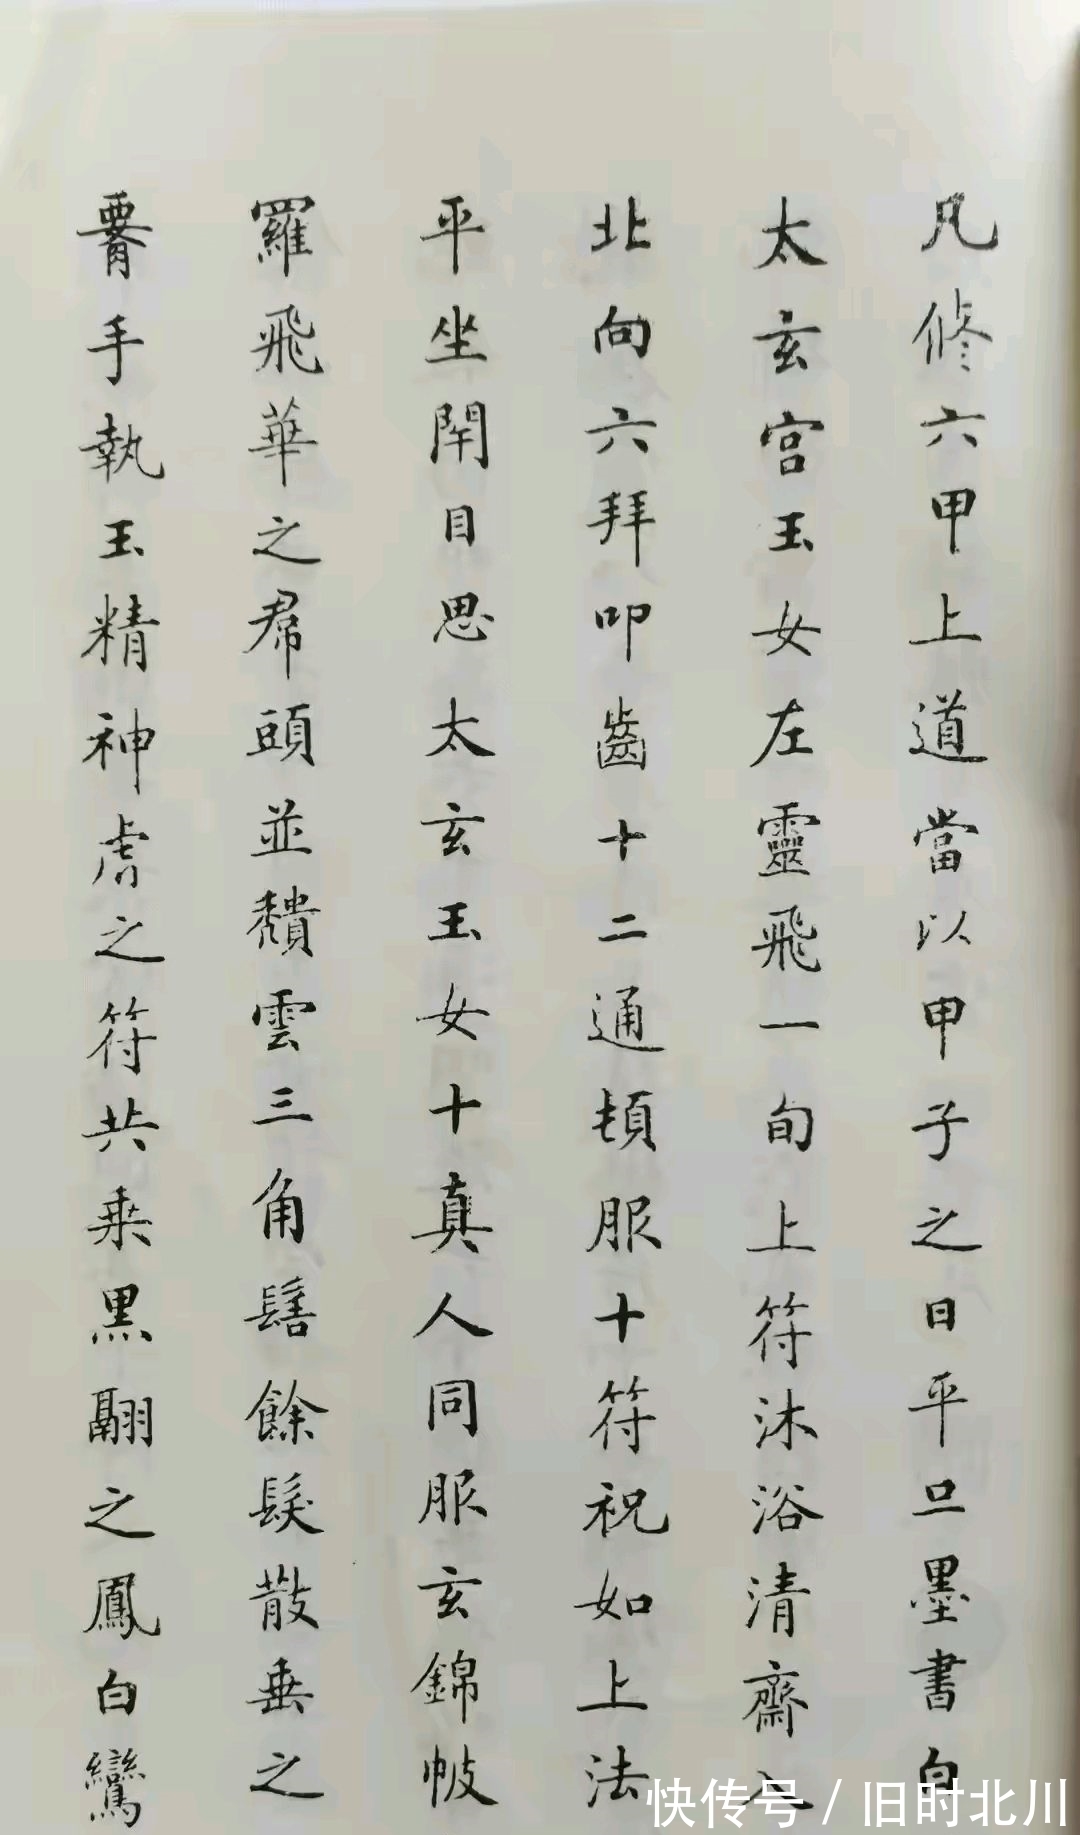 凡修六甲上道當以甲子之日平旦墨書白
太玄宮玉女左靈飛一旬上符沐浴清齋入
北向六拜叩齒十二通頓服十符祝如上法
平坐閇目思太玄玉女十真人同服玄錦帔
羅飛華之帬頭並穨雲三角髻餘髮散垂之
署手執玉精神虎之符共乘黑翮之鳳白鸞
快传号 / 旧时北川